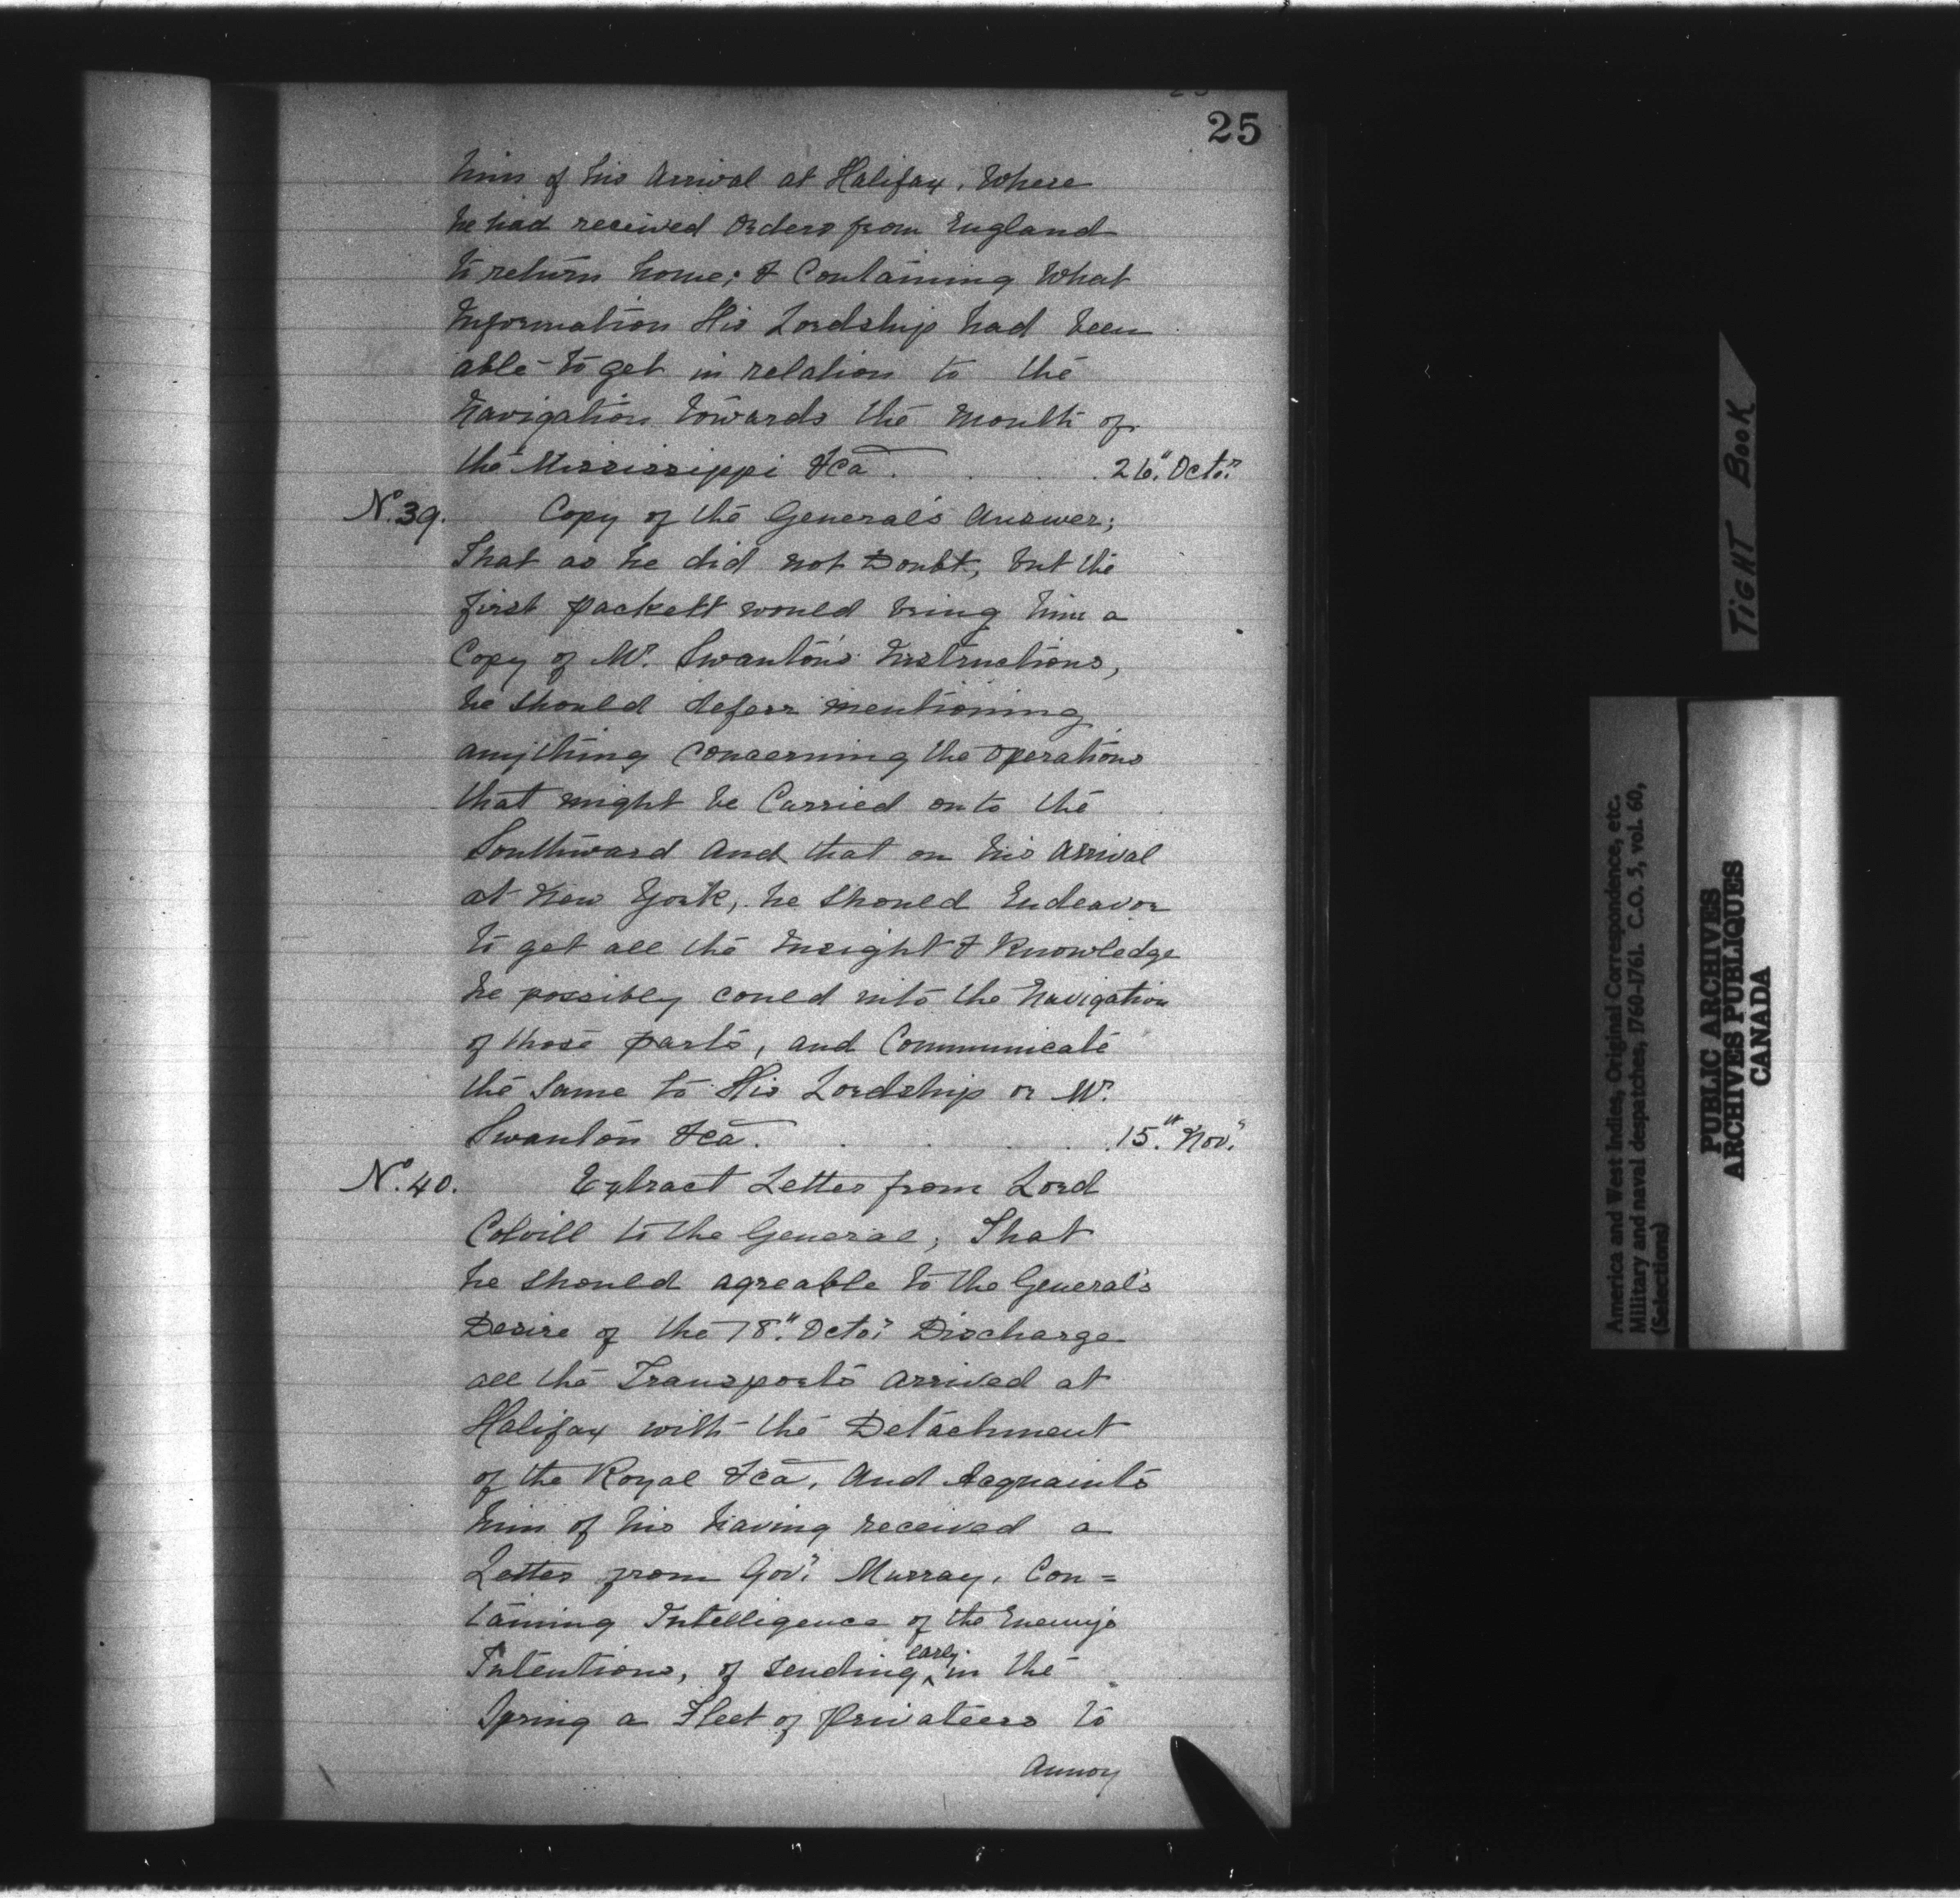 25
him of his Arrival at Halifax, Where
he had received Orders from England
to return home; & Containing What
Information His Lordship had been
able to get in relation to the
Navigation towards the Mouth of
the Mississippi &ca . . . 26." Octo.r
No. 39. Copy of the General's Answer;
That as he did not Doubt, but the
first packett would bring him a
Copy of Mr. Swanton's Instructions,
he should deferr mentioning
anything concerning the Operations
that might be Carried on to the
Southward And that on his Arrival
at New York, he should Endeavor
to get all the Insight & Knowledge
he possibly could into the Navigation
of those parts, and Communicate
the Same to His Lordship or Mr.
Swanton &ca. . . . 15." Nov.r
No. 40. Extract Letter from Lord
Colvill to the General; That
he should agreable to the General's
Desire of the 18." Octo.r Discharge
all the Transports arrived at
Halifax with the Detachment
of the Royal &ca, And Acquaints
him of his having received a
Letter from Gov.r Murray, Con=
taining Intelligence of the Enemy's
Intentions, of sending early in the
Spring a Fleet of Privateers to
Annoy
TIGHT BOOK
America and West Indies, Original Correspondence, etc.
Military and naval despatches, 1760-1761. C.O. 5, vol. 60,
(Selections)
PUBLIC ARCHIVES
ARCHIVES PUBLIQUES
CANADA